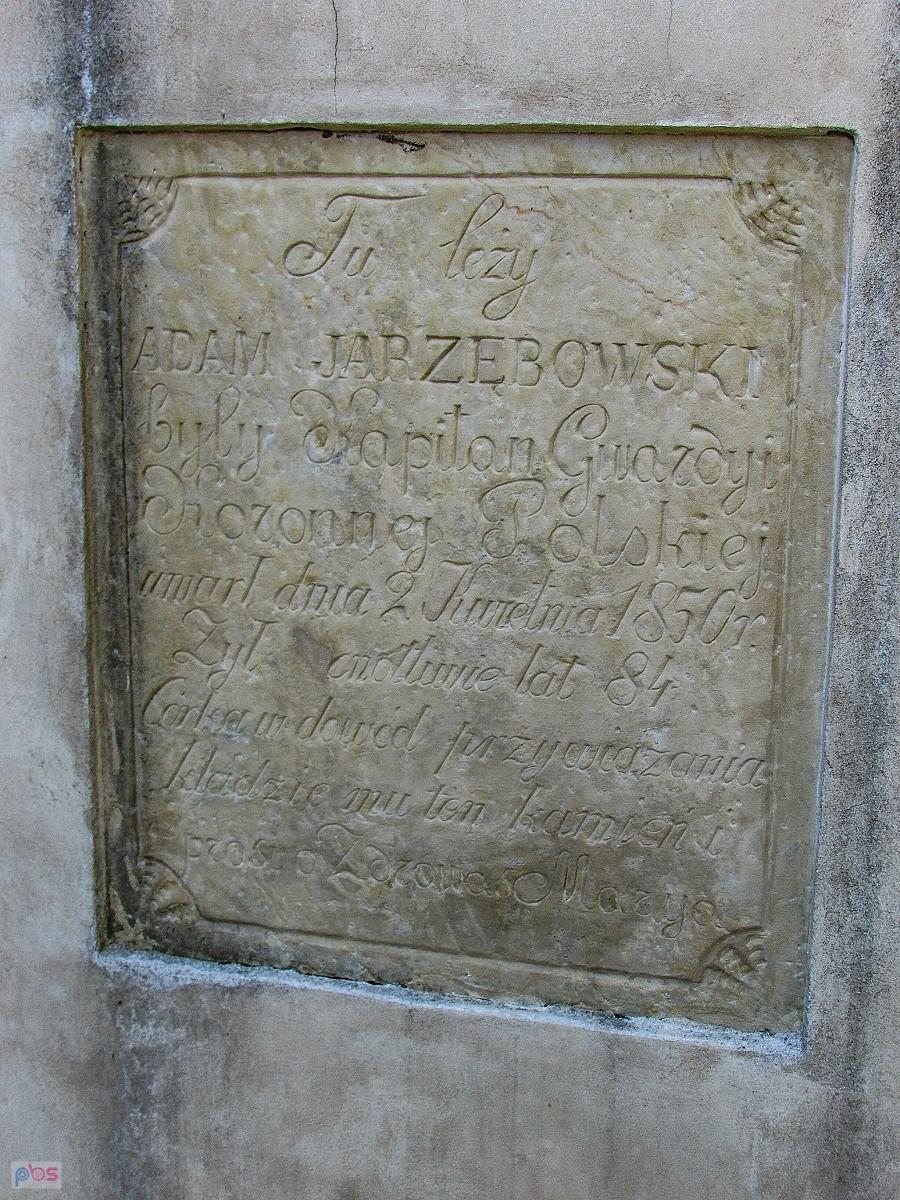 Tu leży
ADAM JARZĘBOWSKI
były Kapitan Gwardyi
Koronnej Polskiej
umarł dnia 2 Kwietnia 1850 r.
Żył cnotliwie lat 84.
Córka w dowód przywiązania
kładzie mu ten kamień i
prosi o Zdrowaś Marya
pbs